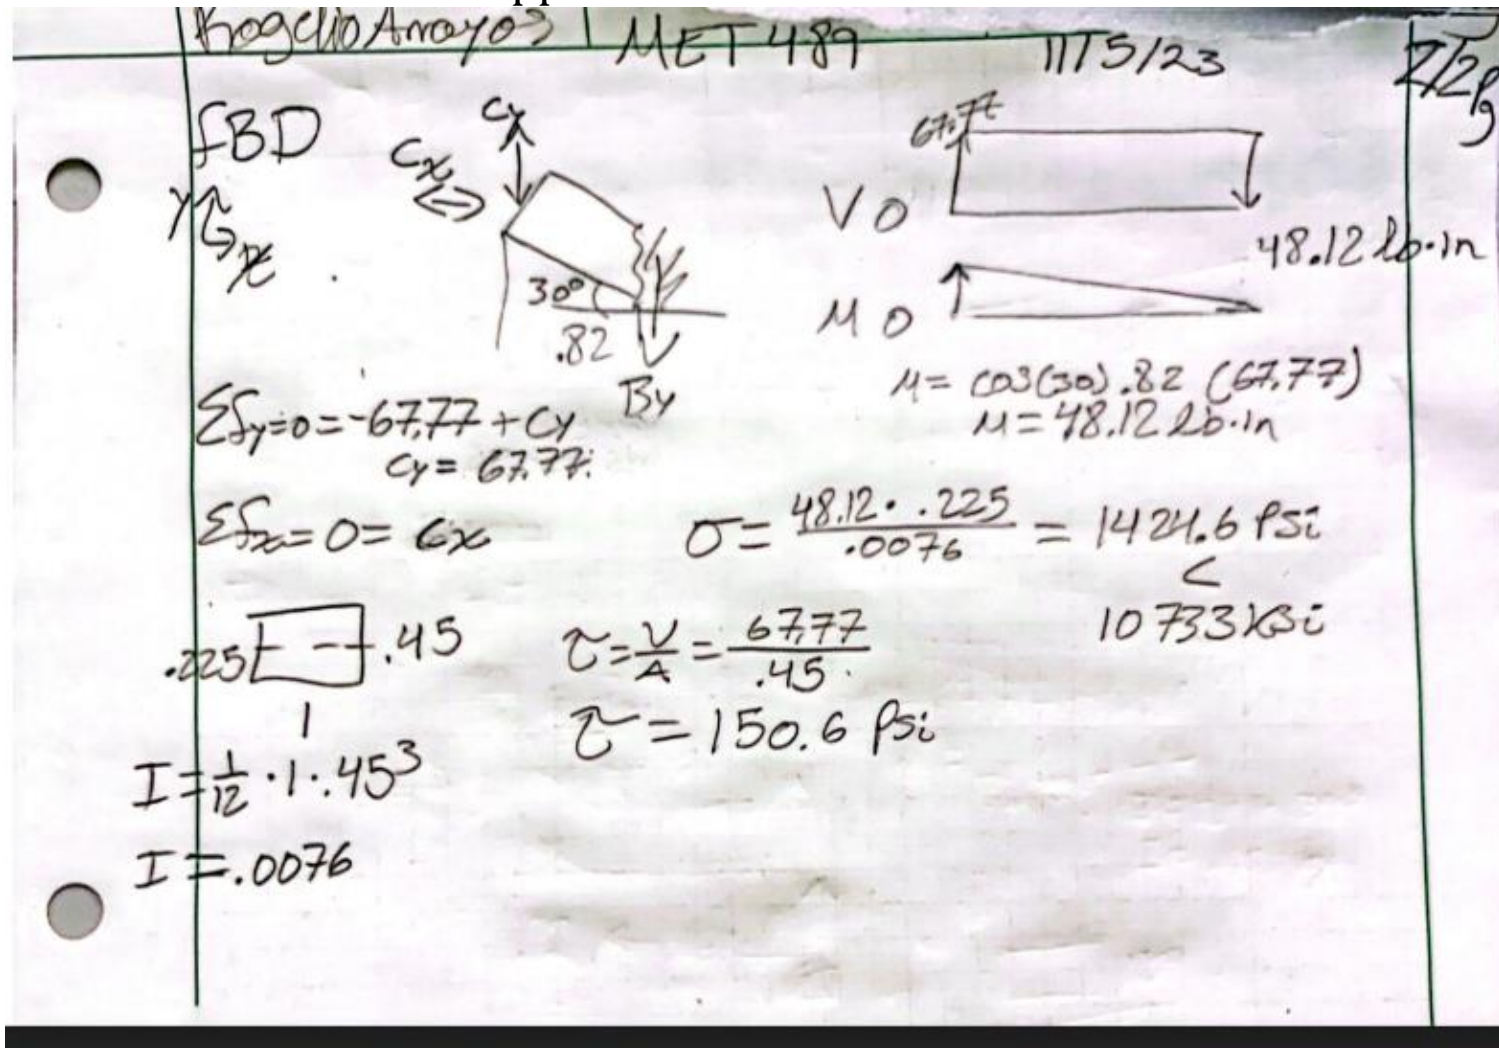 Rogelio Arroyos MET 489 11/15/23 2/2pg
FBD
Cy
Cx
Y
x
30°
.82
By
67.77
V 0
48.12 lb·in
M 0
M = cos(30) .82 (67.77)
M = 48.12 lb·in
Σfy=0=-67.77 + Cy
Cy = 67.77
Σfx=0= Cx
σ = 48.12 · .225 / .0076 = 1424.6 Psi
<
10733 Ksi
.225 .45
1
τ = V/A = 67.77/.45
τ = 150.6 Psi
I = 1/12 · 1 · .45³
I = .0076